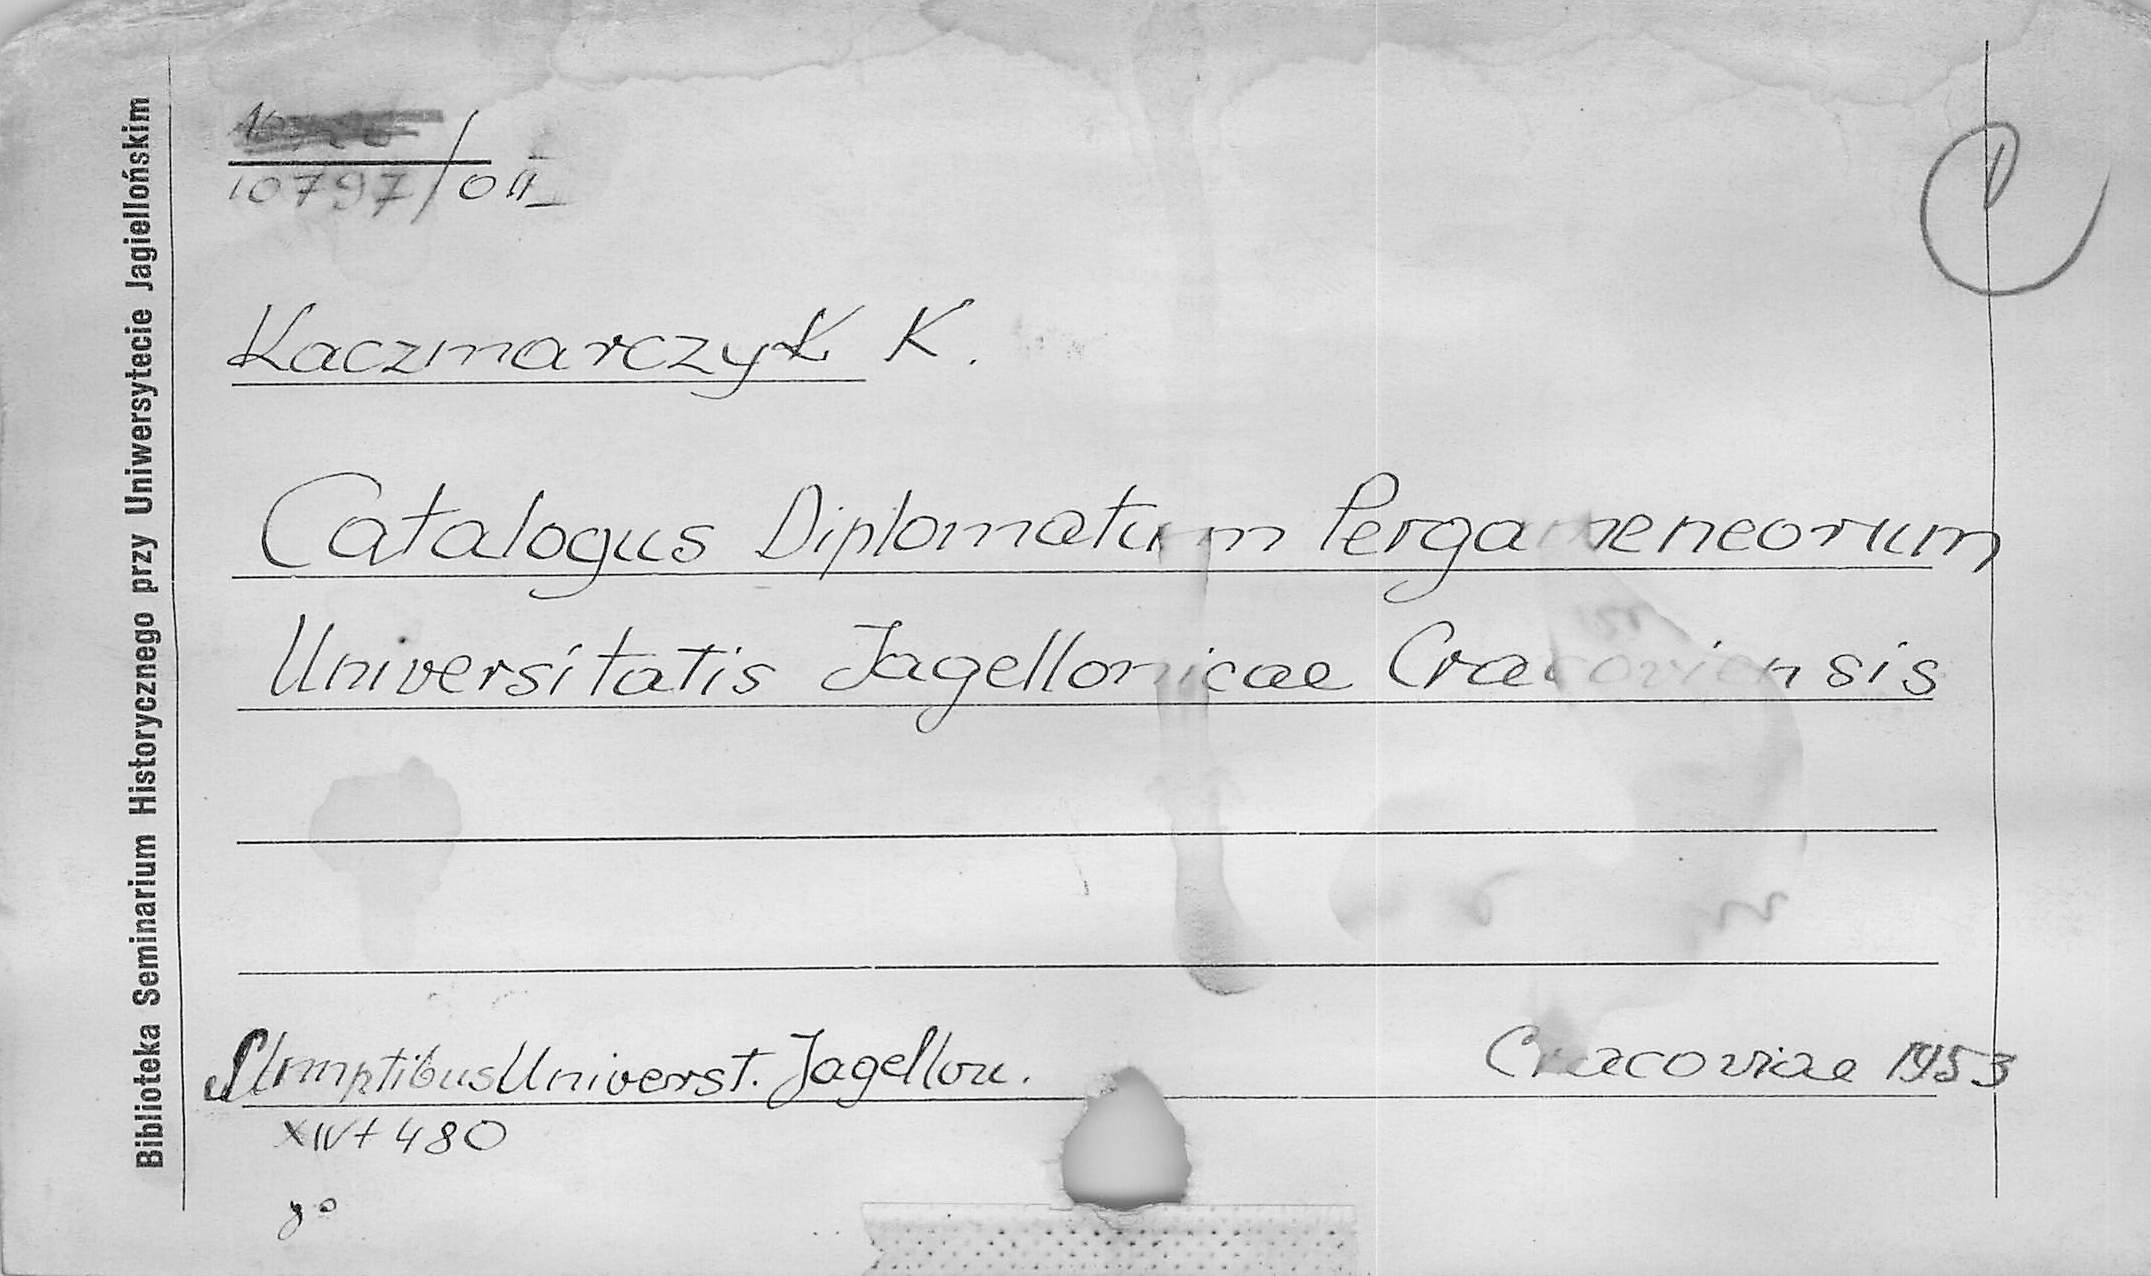 Biblioteka Seminarium Historycznego przy Uniwersytecie Jagiellońskim
10797/O II
Kaczmarczyk K.
Catalogus Diplomatum Pergameneorum
Universitatis Jagellonicae Cracoviensis
Sumptibus Universt. Jagellon.
Cracoviae 1953
XIV + 480
8°